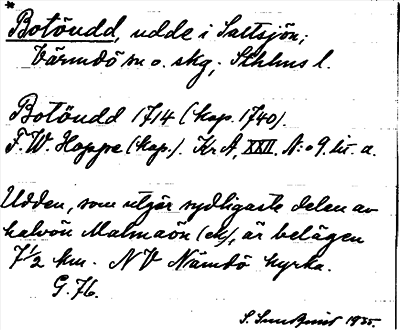 *
Botöudd, udde i Saltsjön;
Värmdö sn o. skg; Sthlms l.
Botöudd 1714 (kop. 1740).
F. W. Hoppe (kop.). Kr A, XXII. N:o 9. lit. a.
Udden, som utgör sydligaste delen av
halvön Malmaön (ek), är belägen
7 1/2 km. NV Nämdö kyrka.
G. 76.
S. 1935